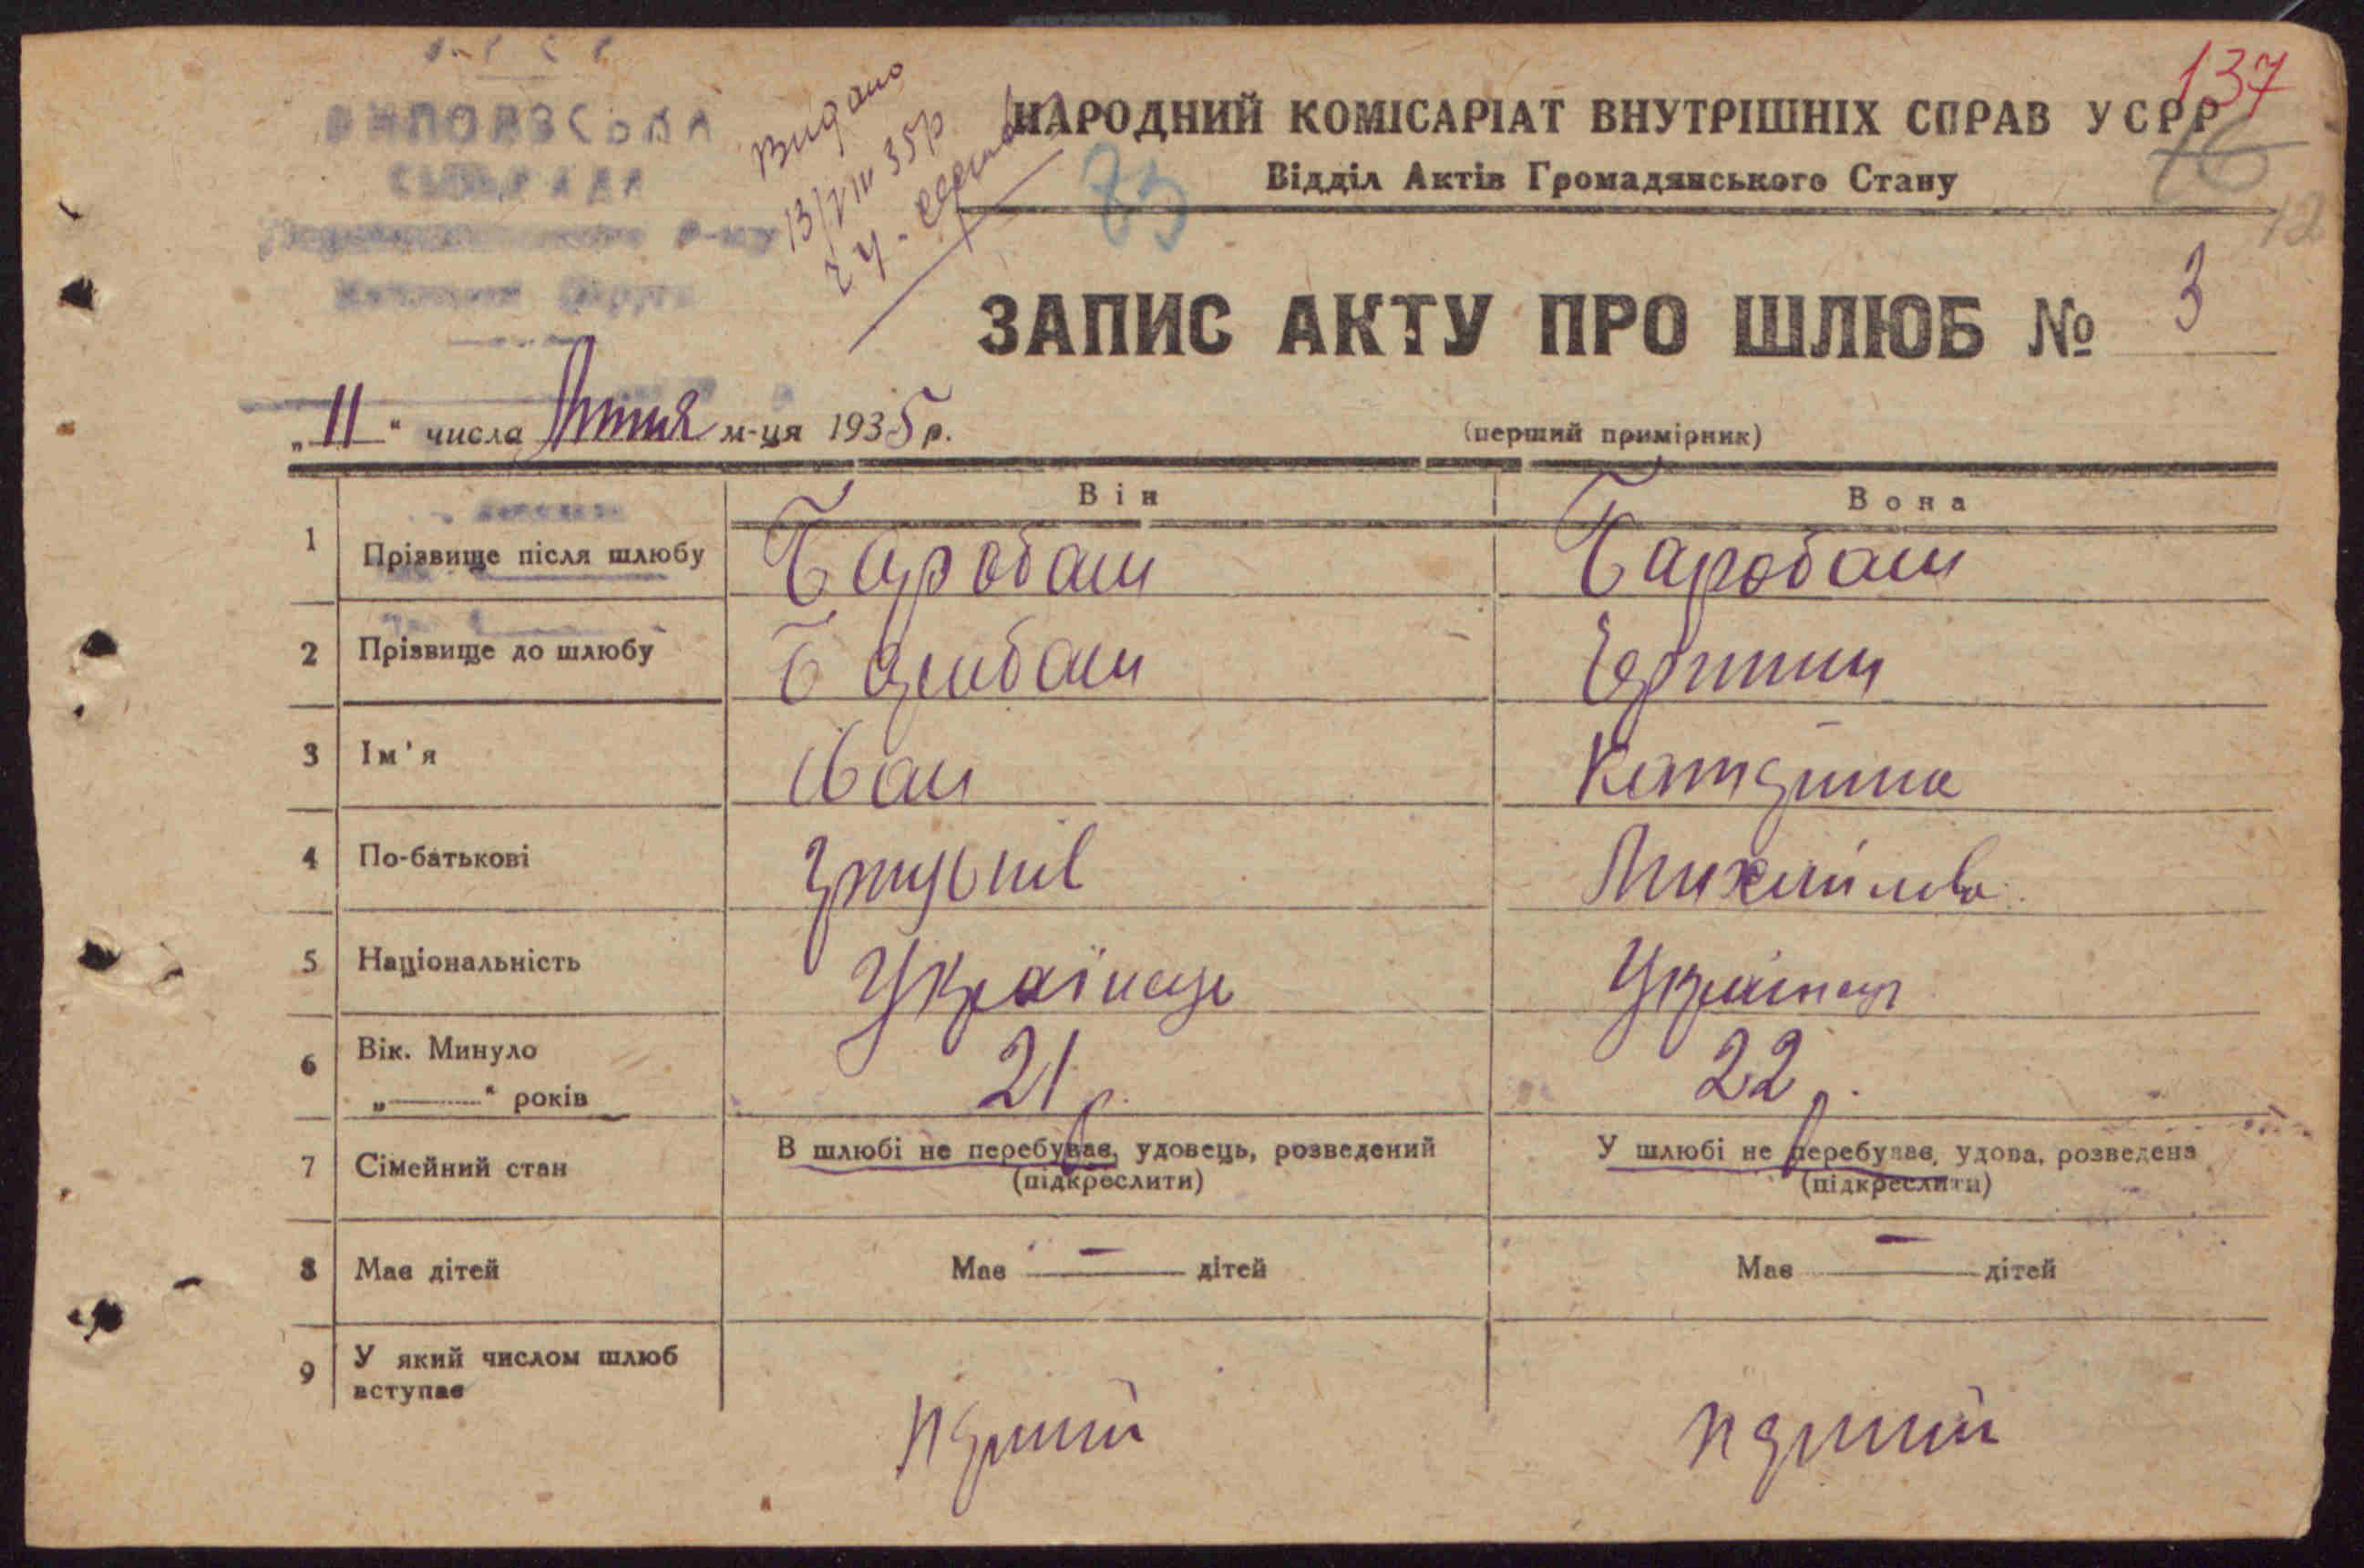 СІЛЬРАДА
Видано
13/VIII 35р
137
НАРОДНИЙ КОМІСАРІАТ ВНУТРІШНІХ СПРАВ УСРР
16
Відділ Актів Громадянського Стану
12
ЗАПИС АКТУ ПРО ШЛЮБ № 3
„11“ числа Липня м-ця 1935 р.
(перший примірник)
Він Вона
1 Прізвище після шлюбу Барабаш Барабаш
2 Прізвище до шлюбу Барабаш
3 Ім'я Іван Катерина
4 По-батькові Михайлова
5 Національність Українець Українец
6 Вік. Минуло 21 р. 22 р.
„——“ років
7 Сімейний стан В шлюбі не перебував, удовець, розведений У шлюбі не перебував, удова, розведена
(підкреслити) (підкреслити)
8 Має дітей Має — дітей Має — дітей
9 У який числом шлюб
вступає
перший перший